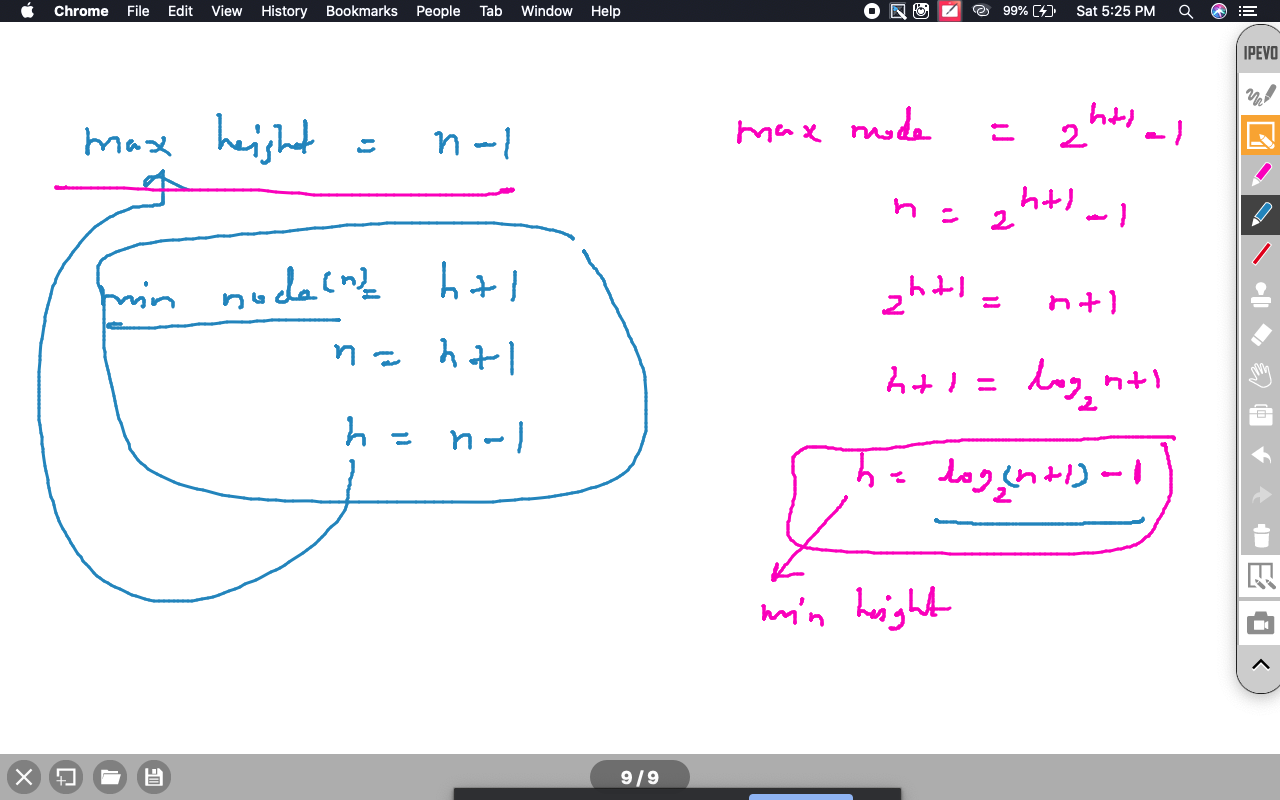 Chrome File Edit View History Bookmarks People Tab Window Help 99% Sat 5:25 PM
IPEVO
max height = n-1
min node(n) = h+1
n = h+1
h = n-1
max node = 2^{h+1} - 1
n = 2^{h+1} - 1
2^{h+1} = n+1
h+1 = log₂ n+1
h = log₂(n+1) - 1
min height
9/9